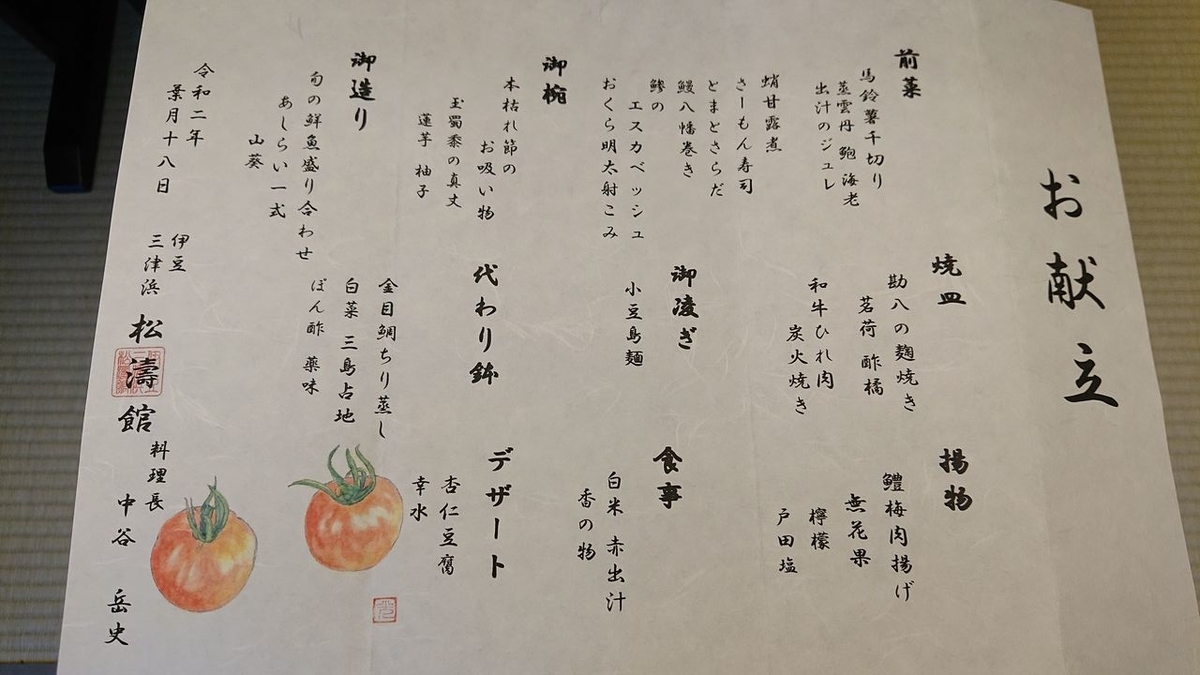 お献立
前菜
馬鈴薯千切り
蒸雲丹 鮑 海老
出汁のジュレ
蛸甘露煮
さーもん寿司
とまとさらだ
鰻八幡巻き
鯵の
エスカベッシュ
おくら明太射こみ
御椀
本枯れ節の
お吸い物
玉蜀黍の真丈
蓮芋 柚子
御造り
旬の鮮魚盛り合わせ
あしらい一式
山葵
焼皿
勘八の麹焼き
茗荷 酢橘
和牛ひれ肉
炭火焼き
御凌ぎ
小豆島麺
代わり鉢
金目鯛ちり蒸し
白菜 三島占地
ぽん酢 薬味
揚物
鱧梅肉揚げ
無花果
檸檬
戸田塩
食事
白米 赤出汁
香の物
デザート
杏仁豆腐
幸水
令和二年
葉月十八日
伊豆
三津浜
松濤館
料理長
中谷 岳史